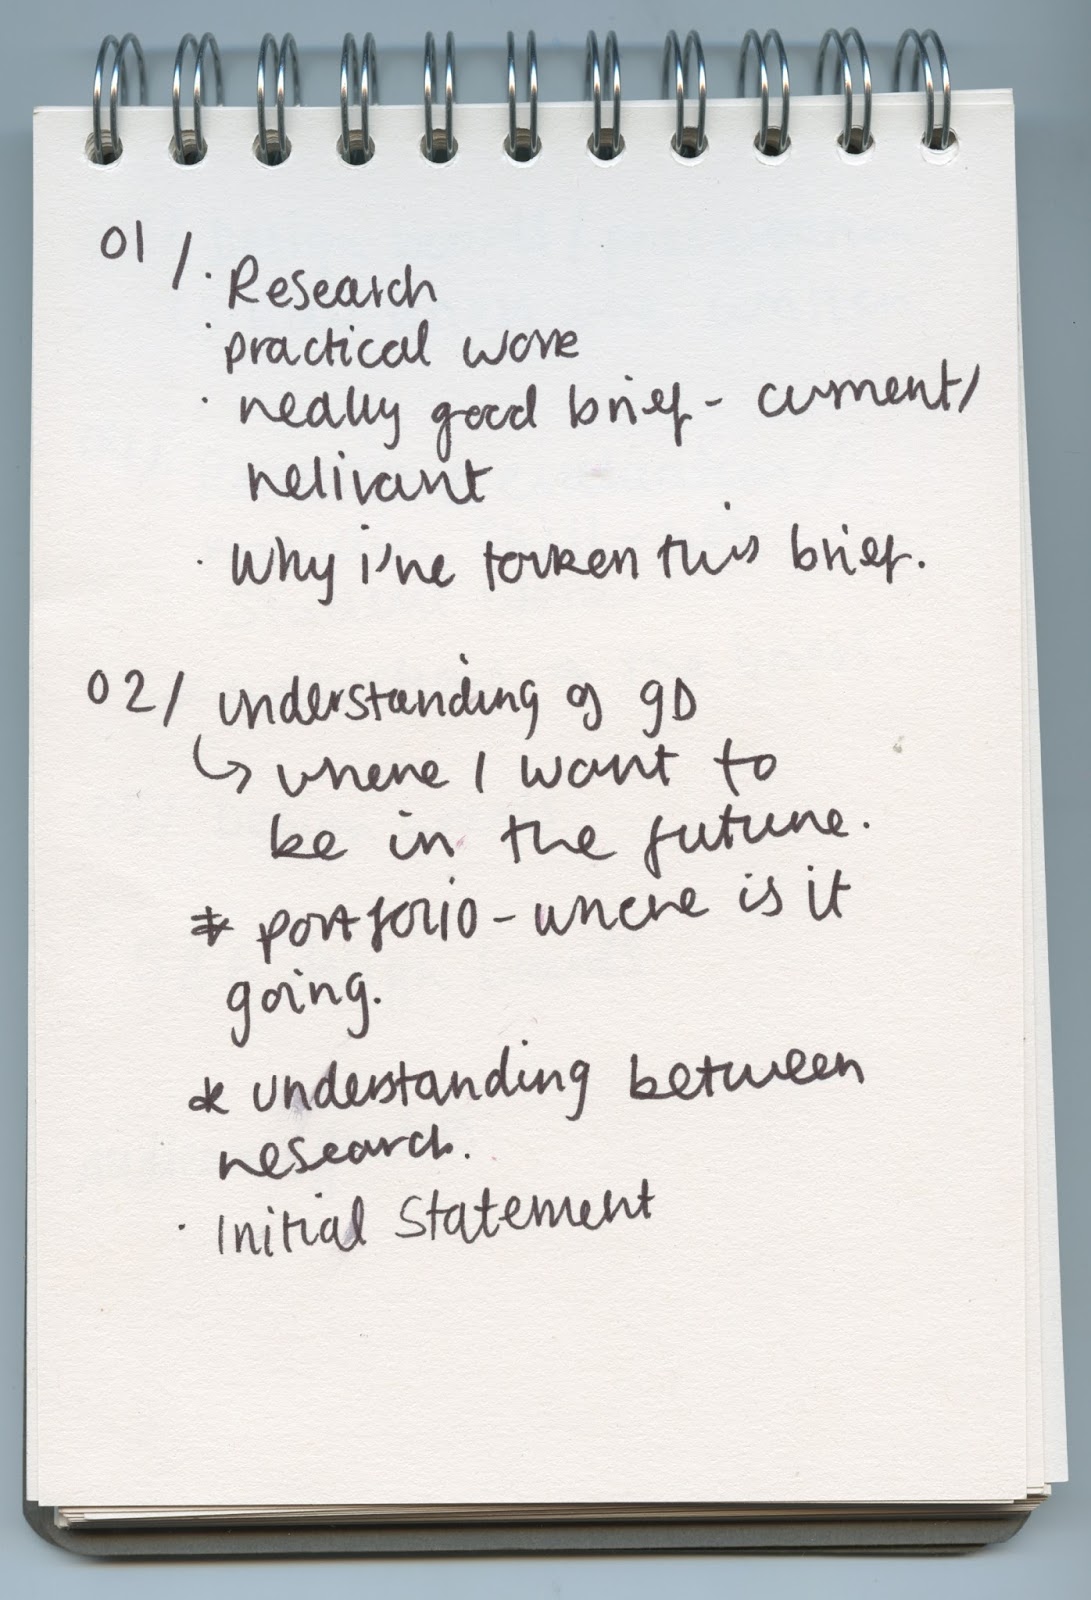 01/ · Research
· practical work
· really good brief - current/
relivant
· Why i've tarken this brief.
02/ understanding of gD
↳ where I want to
be in the future.
* portfolio - where is it
going.
* understanding between
research.
· Initial Statement